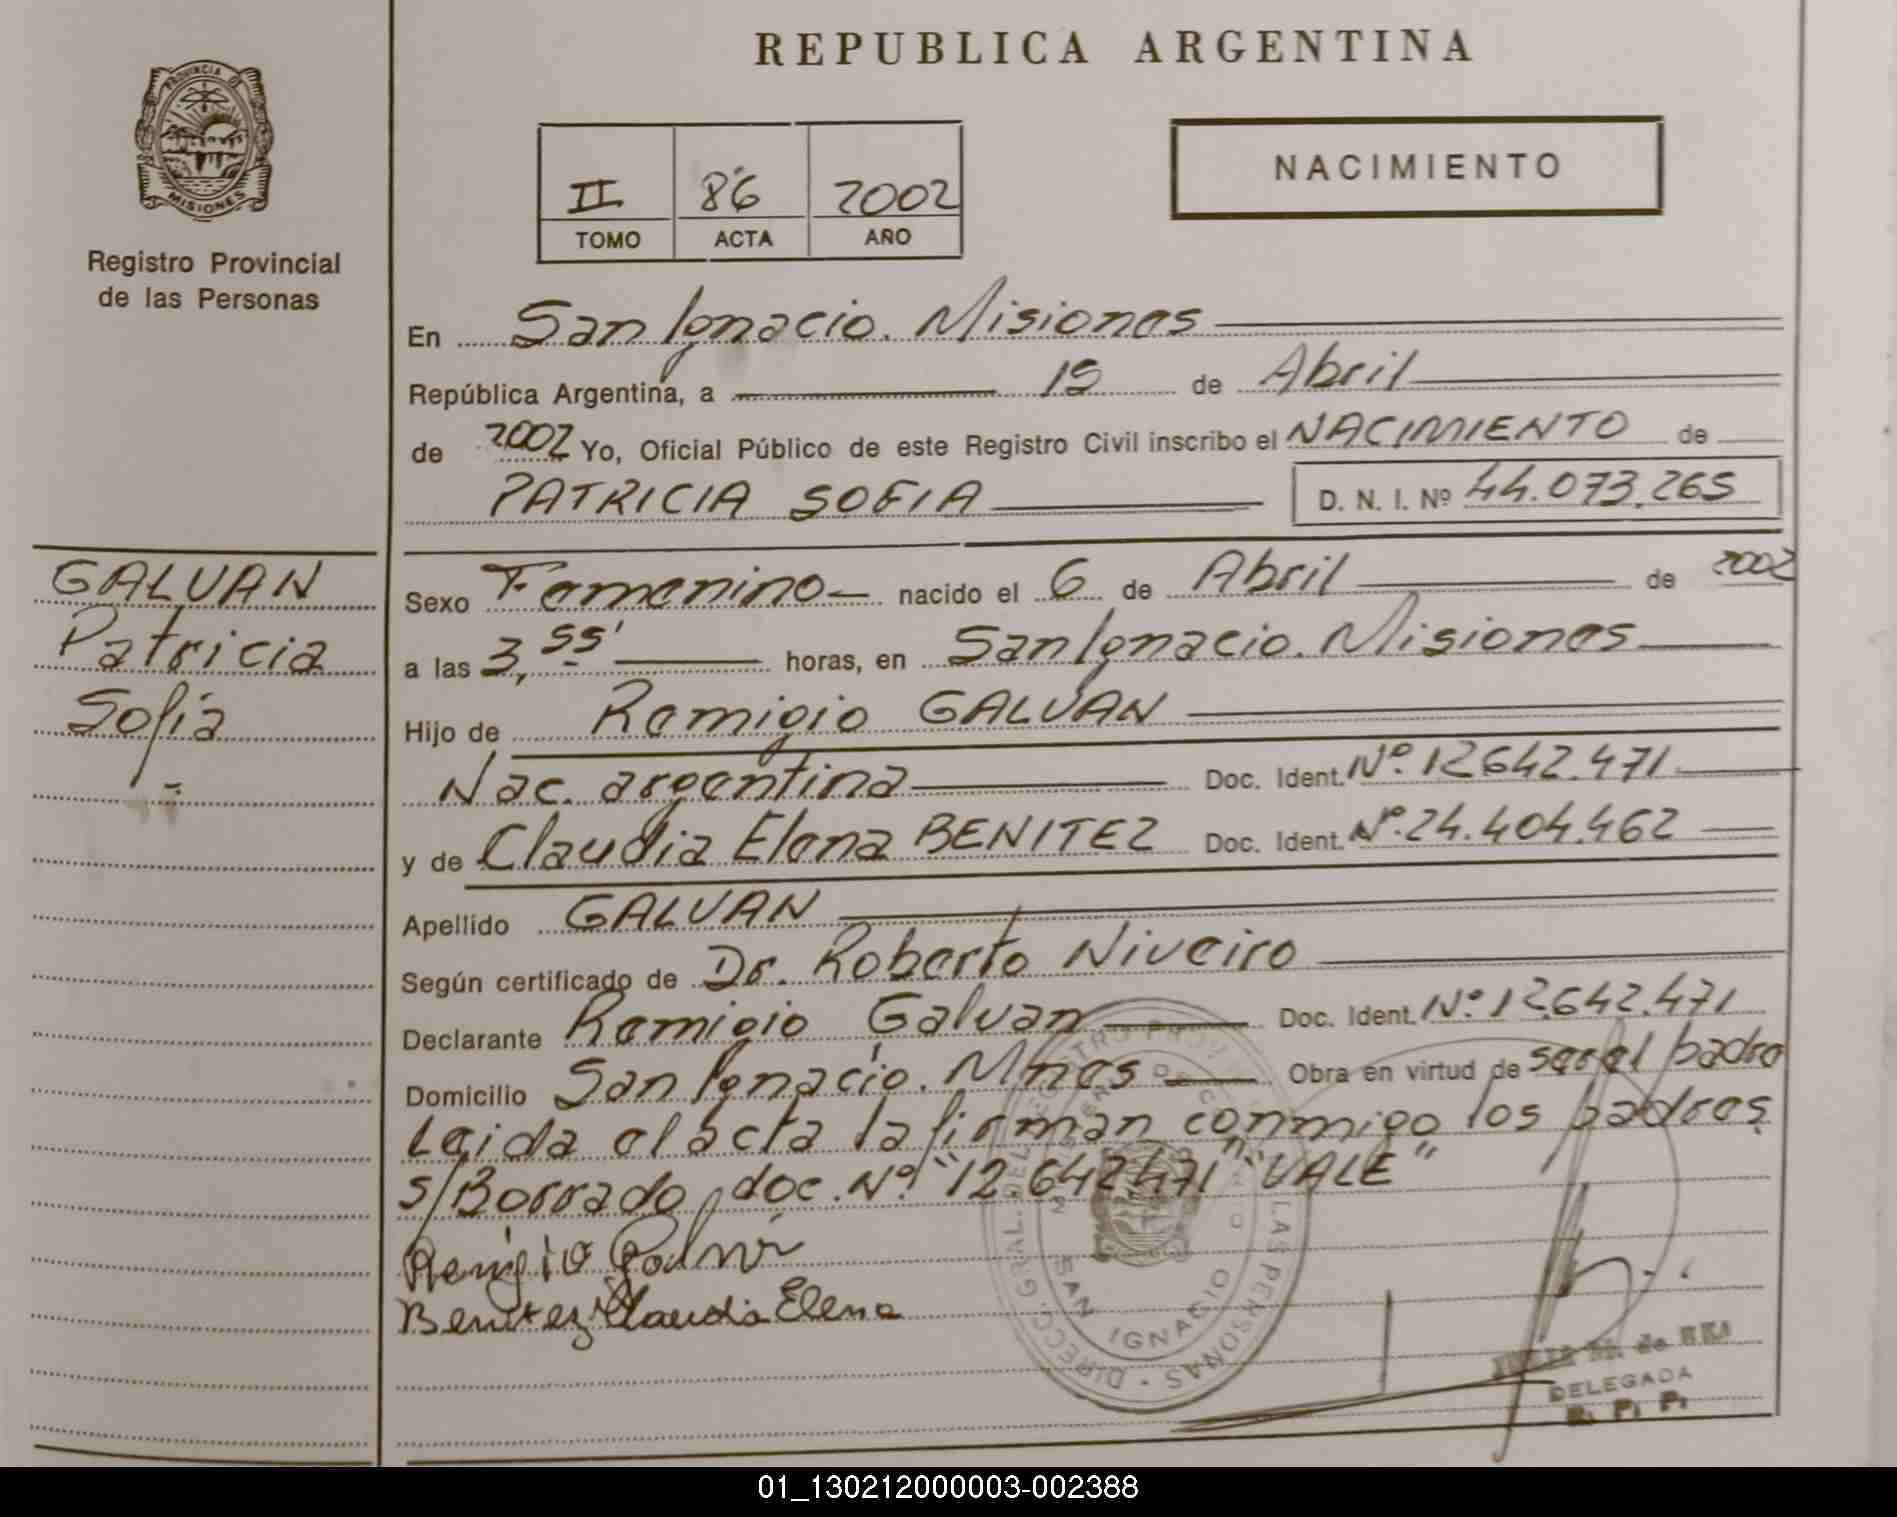 REPUBLICA ARGENTINA
PROVINCIA DE
MISIONES
Registro Provincial
de las Personas
II 86 2002
TOMO ACTA AÑO
NACIMIENTO
En San Ignacio. Misiones
República Argentina, a 19 de Abril
de 2002 Yo, Oficial Público de este Registro Civil inscribo el NACIMIENTO de
PATRICIA SOFIA D. N. I. Nº 44.073.265
GALVAN
Patricia
Sofia
Sexo Femenino nacido el 6 de Abril de 2002
a las 3,55' horas, en San Ignacio. Misiones
Hijo de Remigio GALVAN
Nac. argentina Doc. Ident. Nº. 12642.471
y de Claudia Elena BENITEZ Doc. Ident. Nº.24.404.462
Apellido GALVAN
Según certificado de Dr. Roberto Niveiro
Declarante Remigio Galvan Doc. Ident. Nº. 12.642.471
Domicilio San Ignacio. Mnes Obra en virtud de ser el padre
Leida el acta la firman conmigo los padres.
s/Borrado, doc. Nº. "12.642.471" "VALE"
Remigio
Benitez Claudia Elena
DIRECC. GRAL. DEL REGISTRO PROV. LAS PERSONAS
SAN IGNACIO
DELEGADA
R. P. P.
01_130212000003-002388